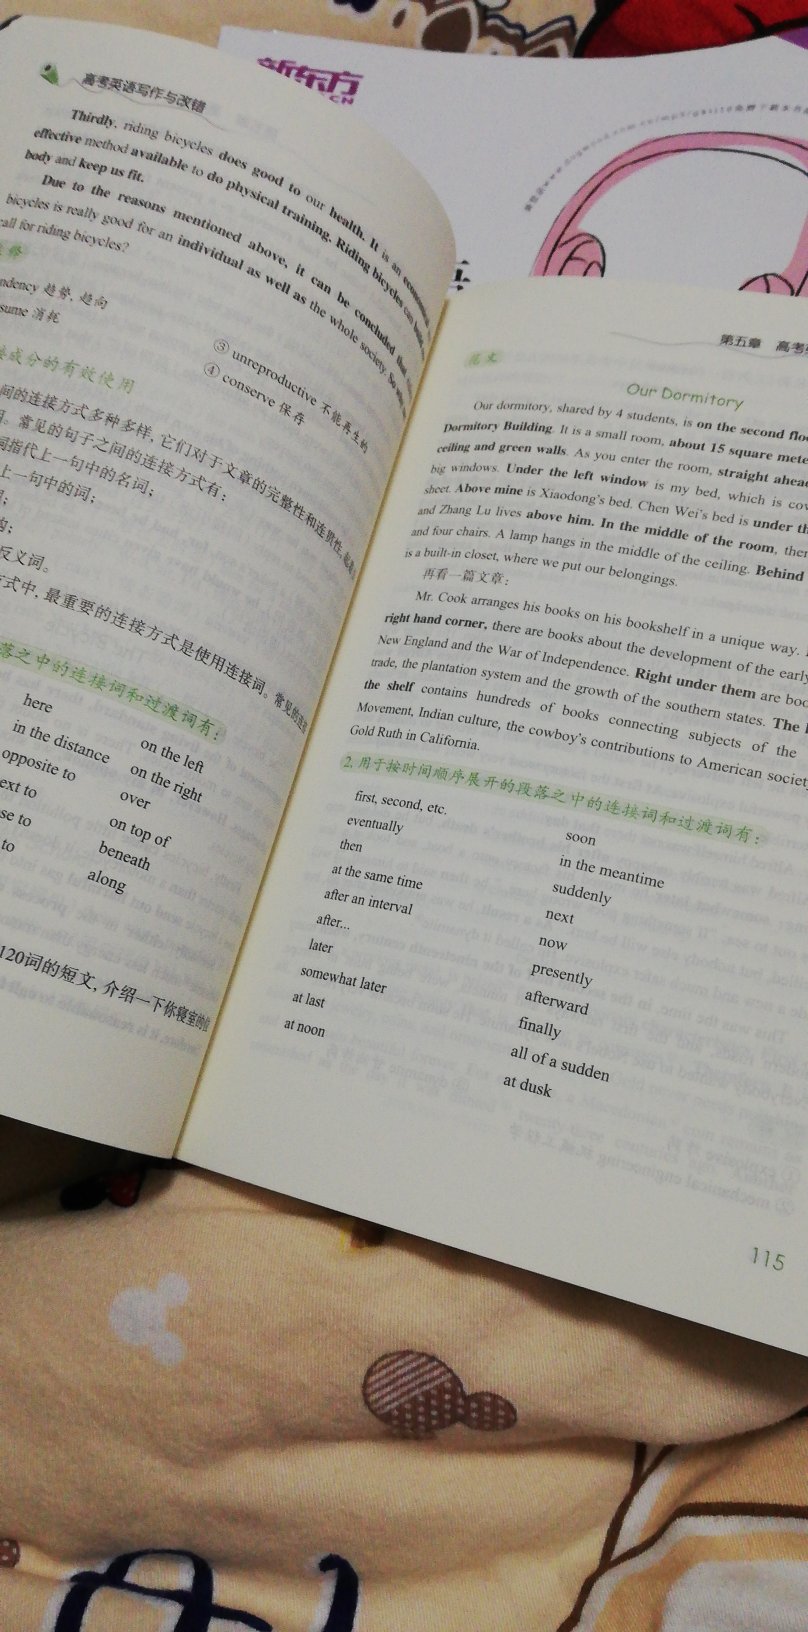 高考英语写作与改错
Thirdly, riding bicycles does good to our health. It is an
effective method available to do physical training. Riding bicycles can
body and keep us fit.
Due to the reasons mentioned above, it can be concluded that
bicycles is really good for an individual as well as the whole society. So
call for riding bicycles?
趋势, 趋向
消耗
③ unreproductive 不能再生的
④ conserve 保存
成分的有效使用
间的连接方式多种多样, 它们对于文章的完整性和连贯性
常见的句子之间的连接方式有:
词指代上一句中的名词;
上一句中的词;
反义词。
方式中, 最重要的连接方式是使用连接词。常见的
落之中的连接词和过渡词有:
here
on the left
in the distance
on the right
opposite to
over
to
on top of
to
beneath
to
along
120词的短文, 介绍一下你寝室的
新东方
第五章 高考
范文
Our Dormitory
Our dormitory, shared by 4 students, is on the second
Dormitory Building. It is a small room, about 15 square
ceiling and green walls. As you enter the room, straight ahead
big windows. Under the left window is my bed, which is
sheet. Above mine is Xiaodong's bed. Chen Wei's bed is under
and Zhang Lu lives above him. In the middle of the room,
and four chairs. A lamp hangs in the middle of the ceiling. Behind
is a built-in closet, where we put our belongings.
再看一篇文章:
Mr. Cook arranges his books on his bookshelf in a unique way.
right hand corner, there are books about the development of the early
New England and the War of Independence. Right under them are
trade, the plantation system and the growth of the southern states. The
the shelf contains hundreds of books connecting subjects of the
Movement, Indian culture, the cowboy's contributions to American
Gold Ruth in California.
2. 用于按时间顺序展开的段落之中的连接词和过渡词有:
first, second, etc.
soon
eventually
in the meantime
then
suddenly
at the same time
next
after an interval
now
after...
presently
later
afterward
somewhat later
finally
at last
all of a sudden
at noon
at dusk
115